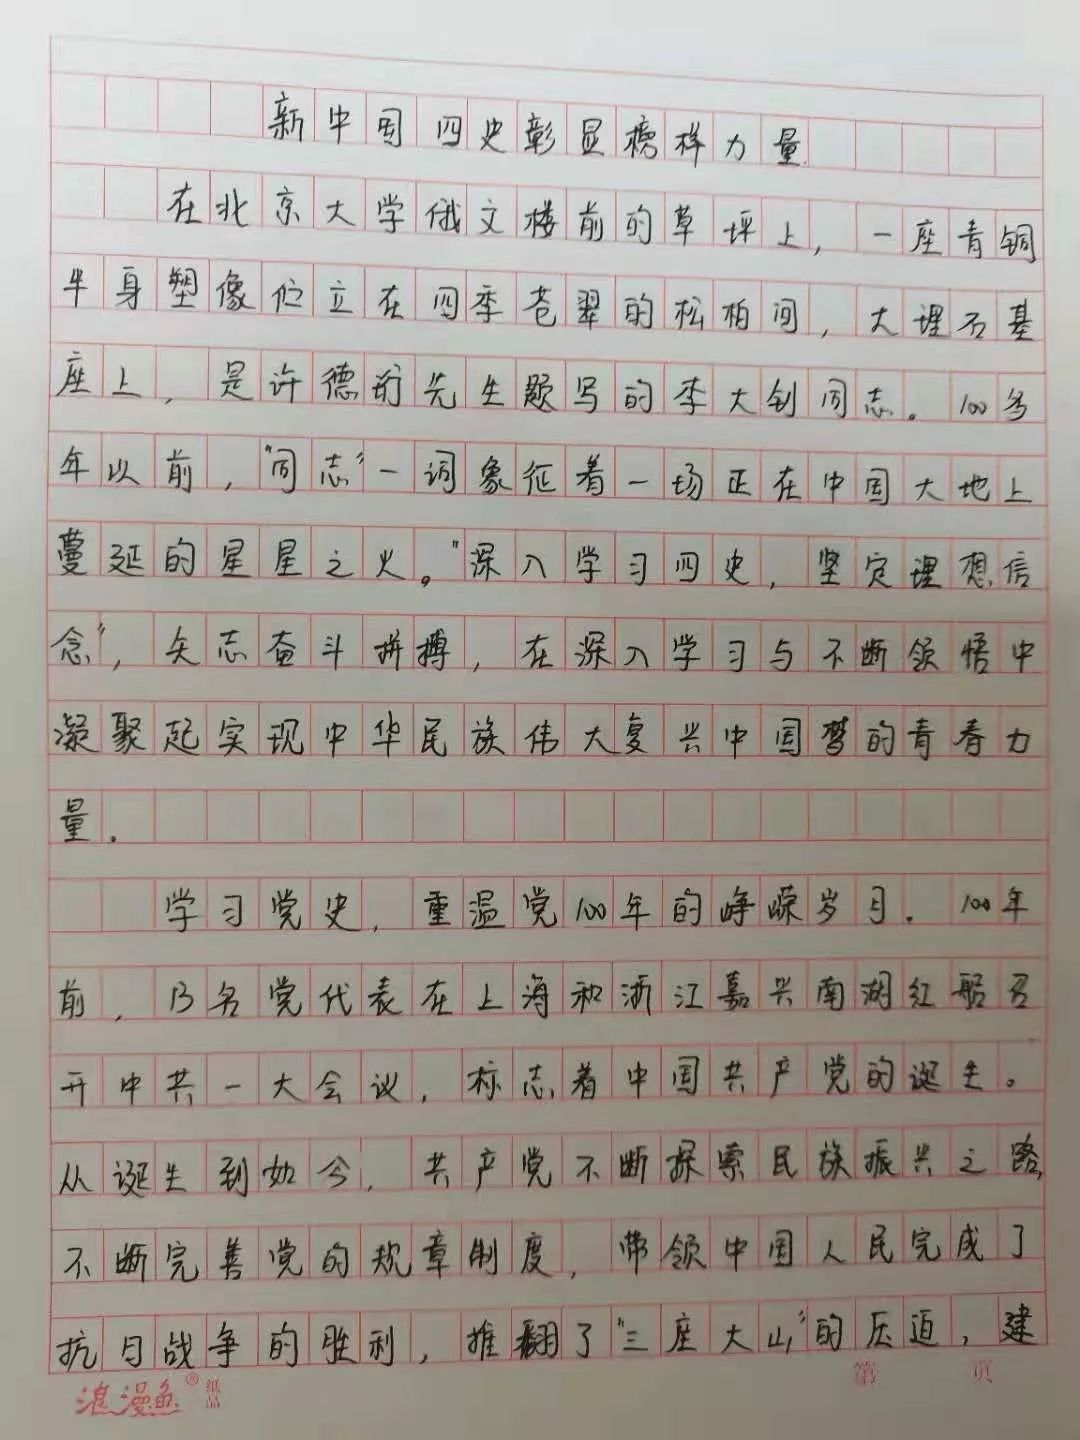 新中国四史彰显榜样力量
在北京大学俄文楼前的草坪上，一座青铜
半身塑像伫立在四季苍翠的松柏间，大理石基
座上，是许德珩先生题写的李大钊同志。100多
年以前，“同志”一词象征着一场正在中国大地上
蔓延的星星之火。“深入学习四史，坚定理想信
念”，矢志奋斗拼搏，在深入学习与不断领悟中
凝聚起实现中华民族伟大复兴中国梦的青春力
量．
学习党史，重温党100年的峥嵘岁月．100年
前，13名党代表在上海和浙江嘉兴南湖红船召
开中共一大会议，标志着中国共产党的诞生。
从诞生到如今，共产党不断探索民族振兴之路，
不断完善党的规章制度，带领中国人民完成了
抗日战争的胜利，推翻了“三座大山”的压迫，建
浪漫鱼®纸品
第 页